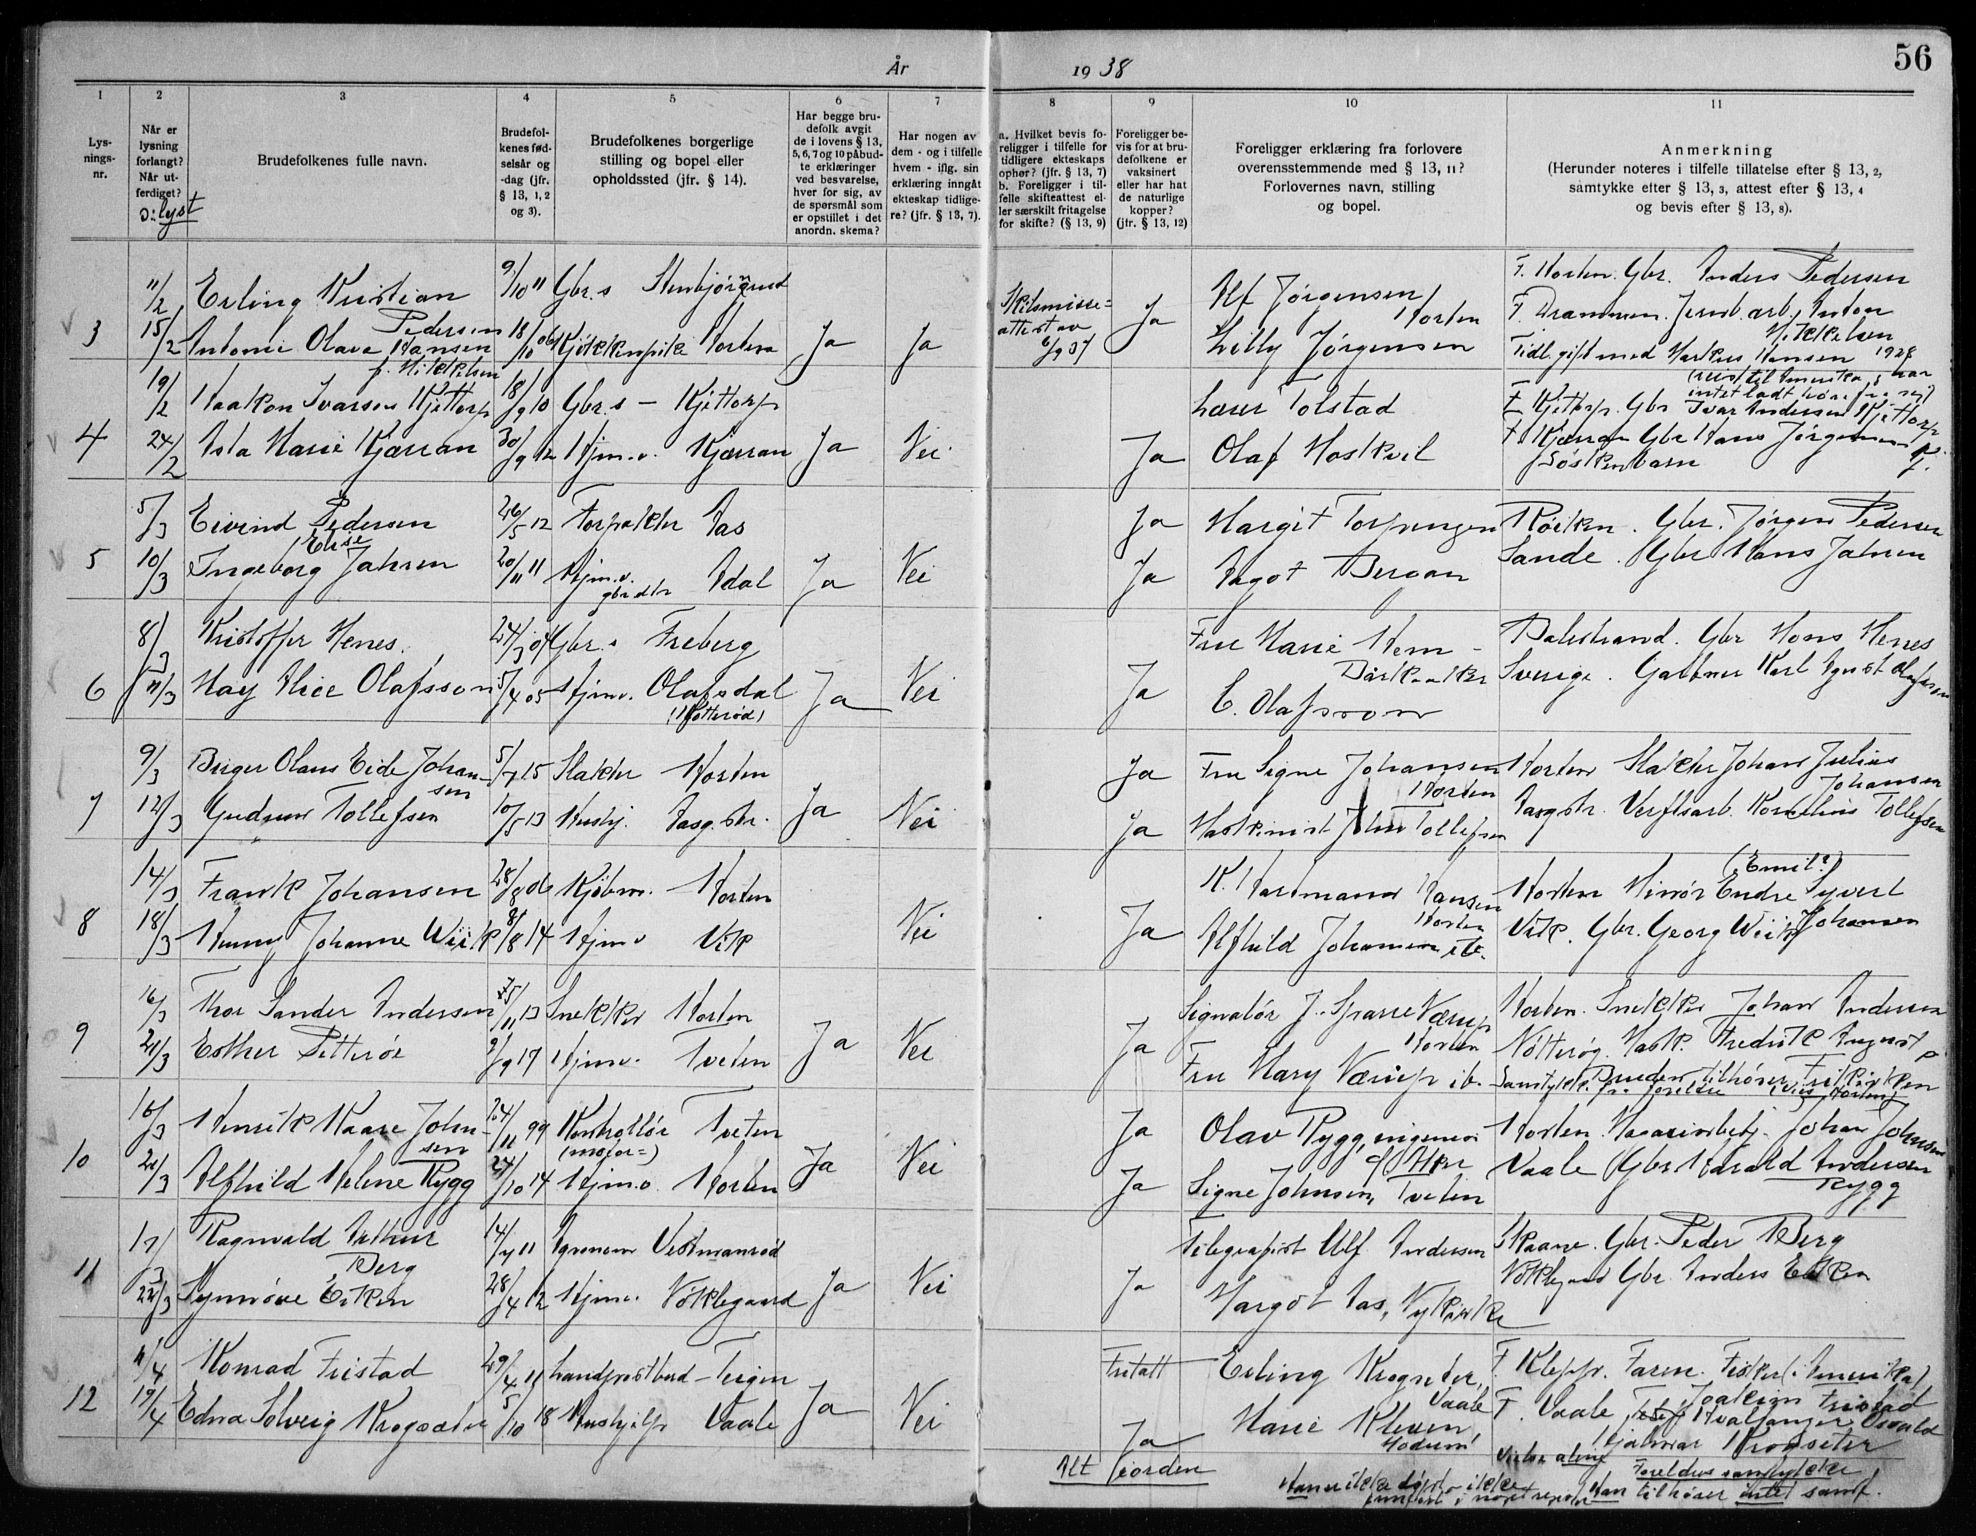 56
År 1938
1 2 3 4 5 6 7 8 9 10 11
Lys-
nings-
nr.
Når er
lysning
forlangt?
Når ut-
ferdiget?
ɔ: lyst
Brudefolkenes fulle navn.
Brudefol-
kenes fød-
selsår og
-dag (jfr.
§ 13, 1, 2
og 3).
Brudefolkenes borgerlige
stilling og bopel eller
opholdssted (jfr. § 14).
Har begge bru-
defolk avgit
de i lovens § 13,
5, 6, 7 og 10 påbud-
te erklæringer
ved besvarelse,
hver for sig, av
de spørsmål som
er opstillet i det
anordn. skema?
Har nogen av
dem - og i tilfelle
hvem - iflg. sin
erklæring inngått
ekteskap tidlige-
re? (jfr. § 13, 7).
a. Hvilket bevis fo-
religger i tilfelle for
tidligere ekteskaps
ophør? (jfr. § 13, 7)
b. Foreligger i til-
felle skifteattest el-
ler særskilt fritagelse
for skifte? (§ 13, 9)
Foreligger be-
vis for at bru-
defolkene er
vaksinert
eller har hat
de naturlige
kopper?
(jfr. § 13, 12)
Foreligger erklæring fra forlovere
overensstemmende med § 13, 11?
Forlovernes navn, stilling
og bopel.
Anmerkning
(Herunder noteres i tilfelle tillatelse efter § 13, 2,
samtykke efter § 13, 3, attest efter § 13, 4
og bevis efter § 13, 8).
3
11/2 Erling Kristian Pedersen 9/10 11 Gbr.s Stenbjørnrud
15/2 Antonie Olava Hansen f. Mikkelsen 18/10 06 Kjøkkenpike Horten Ja Ja
Skilsmisse=
attest av
Ja
Alf Jørgensen Horten
Lilly Jørgensen
F. Horten. Gbr. Anders Pedersen
F. Drammen. Jernb.arb. Anton Mikkelsen
Tidl. gift med Markus Hansen 1928
(reist til Amerika, har
intet ladt høre fra sig)
4
19/2 Haakon Ivarsen Kjøttorp 18/9 10 Gbr.s - Kjøttorp
24/2 Asta Marie Kjærran 30/9 12 Hjm.v. Kjærran Ja Nei
Ja
Tolstad
Olaf Moskvil
F. Kjøttorp. Gbr Ivar Andersen Kjøttorp
F. Kjærran Gbr Hans Jørgensen Kj.
Søskenbarn
5
5/3 Eivind Pedersen 26/5 12 Forpakter Aas
10/3 Ingeborg Elise Jahren 20/11 11 Hjm.v. gbr.dtr Adal Ja Nei
Ja
Ja
Margit Torpengen
Aagot Bergan
Røiken. Gbr. Jørgen Pedersen
Sande. Gbr Hans Jahren
6
8/3 Kristoffer Henes. 24/3 04 Gbr.s Freberg
11/3 May Alice Olafsson 5/4 05 Hjmv. Olafsdal (Kotterød) Ja Nei
Ja
Fru Marie Hem -
C. Olafsson
Balestrand. Gbr Mons Henes
Sverige. Gartner Karl Agust Olafsson
7
9/3 Birger Olaus Eide Johan-
sen 5/7 15 Slakter Horten
12/3 Gudrun Tollefsen 10/5 13 Hushj. Aasg.str. Ja Nei
Ja
Ja
Fru Signe Johansen Horten
Maskinist John Tollefsen
Horten Slakter Johan Julius Johansen
Aasgstr. Verftsarb. Kornelius Tollefsen
8
14/3 Frank Johansen 28/8 06 Kjøbm. Horten
18/3 Henny Johanne Wiik 8/8 14 Hjmv Vik Nei
Ja
K. Hartmann Hansen Horten
Alfhild Johansen ib.
(Emil?)
Horten Minør Endre Syvert Johansen
Vik. Gbr. Georg Wiik
9
16/3 Thor Sander Andersen 25/11 13 Snekker Horten
21/3 Esther Petterøe 2/9 17 Hjmv. Tveten Ja Nei
Ja
Signalør J. Sparre Værup Horten
Fru Mary Værup ib.
Horten. Snekker Johan Andersen
Nøtterøy. Mask. Fredrik August P
Samtykke fra foreldre
Bruden tilhører Frikirken
10
16/3 Henrik Kaare John-
sen 24/11 99 Kontrollør (motor=) Tveten
21/3 Alfhild Helene Rygg 24/10 14 Hjm.v. Horten Ja Nei
Ja
Ja
Olav Rygg, ingeniør
Signe Johnsen, Tveten
Horten. Johan Johnsen
Vaale Gbr Harald Andersen Rygg
11
17/3 Ragnvald Arthur
Berg 14/7 11 Agronom Vestmanrød
22/3 Synnøve Eiken 28/4 12 Hjmv. Voklegaard Ja Nei
Ja
Telegrafist Ulf Andersen
Margot Aas, Nykirke
Skaane. Gbr. Peder Berg
Voklegaard Gbr. Anders Eiken
12
11/4 Konrad Fristad 29/4 11 Landpostbud - Teigen
19/4 Edna Solveig Krogseter 5/10 18 Hushjelp Vaale Ja Nei
Fritatt
Ja
Erling Krogseter, Vaale
Marie Kleven, Modum
F. Klepp. Faren. Fisker (i Amerika) Joakim Fristad
F. Vaale, Hvalfanger Osvald
Hjalmar Krogseter
Foreldres samtykke
Alt iorden
Han er ikke døpt o ikke
Han tilhører intet samf.